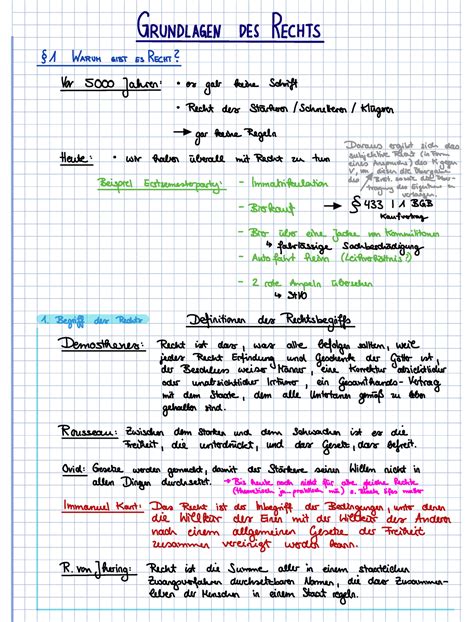 GRUNDLAGEN DES RECHTS
§1 WARUM GIBT ES RECHT?
Vor 5000 Jahren: • es gab keine Schrift
• Recht des Stärkeren / Schnelleren / Klügeren
→ gar keine Regeln
Heute: • wir haben überall mit Recht zu tun
Daraus ergibt sich das
subjektive Recht (in Form
eines Anspruchs) des K gegen
V, von diesem die Übergabe
des Biers sowie die Über-
tragung des Eigentums zu
verlangen.
Beispiel Erstsemesterparty: - Immatrikulation
- Bierkauf → § 433 I 1 BGB
Kaufvertrag
- Bier über eine Jacke von Kommilitonen
↳ fahrlässige Sachbeschädigung
- Autofahrt heim (Leihverhältnis?)
- 2 rote Ampeln übersehen
↳ StVO
1. Begriff des Rechts
Definitionen des Rechtsbegriffs
Demosthenes: Recht ist das, was alle befolgen sollten, weil
jedes Recht Erfindung und Geschenk der Götter ist,
der Beschluss weiser Männer, eine Korrektur absichtlicher
oder unabsichtlicher Irrtümer, ein Gesamthands-Vertrag
mit dem Staate, dem alle Untertanen gemäß zu leben
gehalten sind.
Rousseau: Zwischen dem Starken und dem Schwachen ist es die
Freiheit, die unterdrückt, und das Gesetz, das befreit.
Ovid: Gesetze werden gemacht, damit der Stärkere seinen Willen nicht in
allen Dingen durchsetzt. → Bis heute noch nicht für alle gleiche Rechte
(theoretisch ja, praktisch nie)
Immanuel Kant: Das Recht ist der Inbegriff der Bedingungen, unter denen
die Willkür des Einen mit der Willkür des Anderen
nach einem allgemeinen Gesetze der Freiheit
zusammen vereinigt werden kann.
R. von Jhering: Recht ist die Summe aller in einem staatlichen
Zwangsverfahren durchsetzbaren Normen, die das Zusammen-
leben der Menschen in einem Staat regeln.